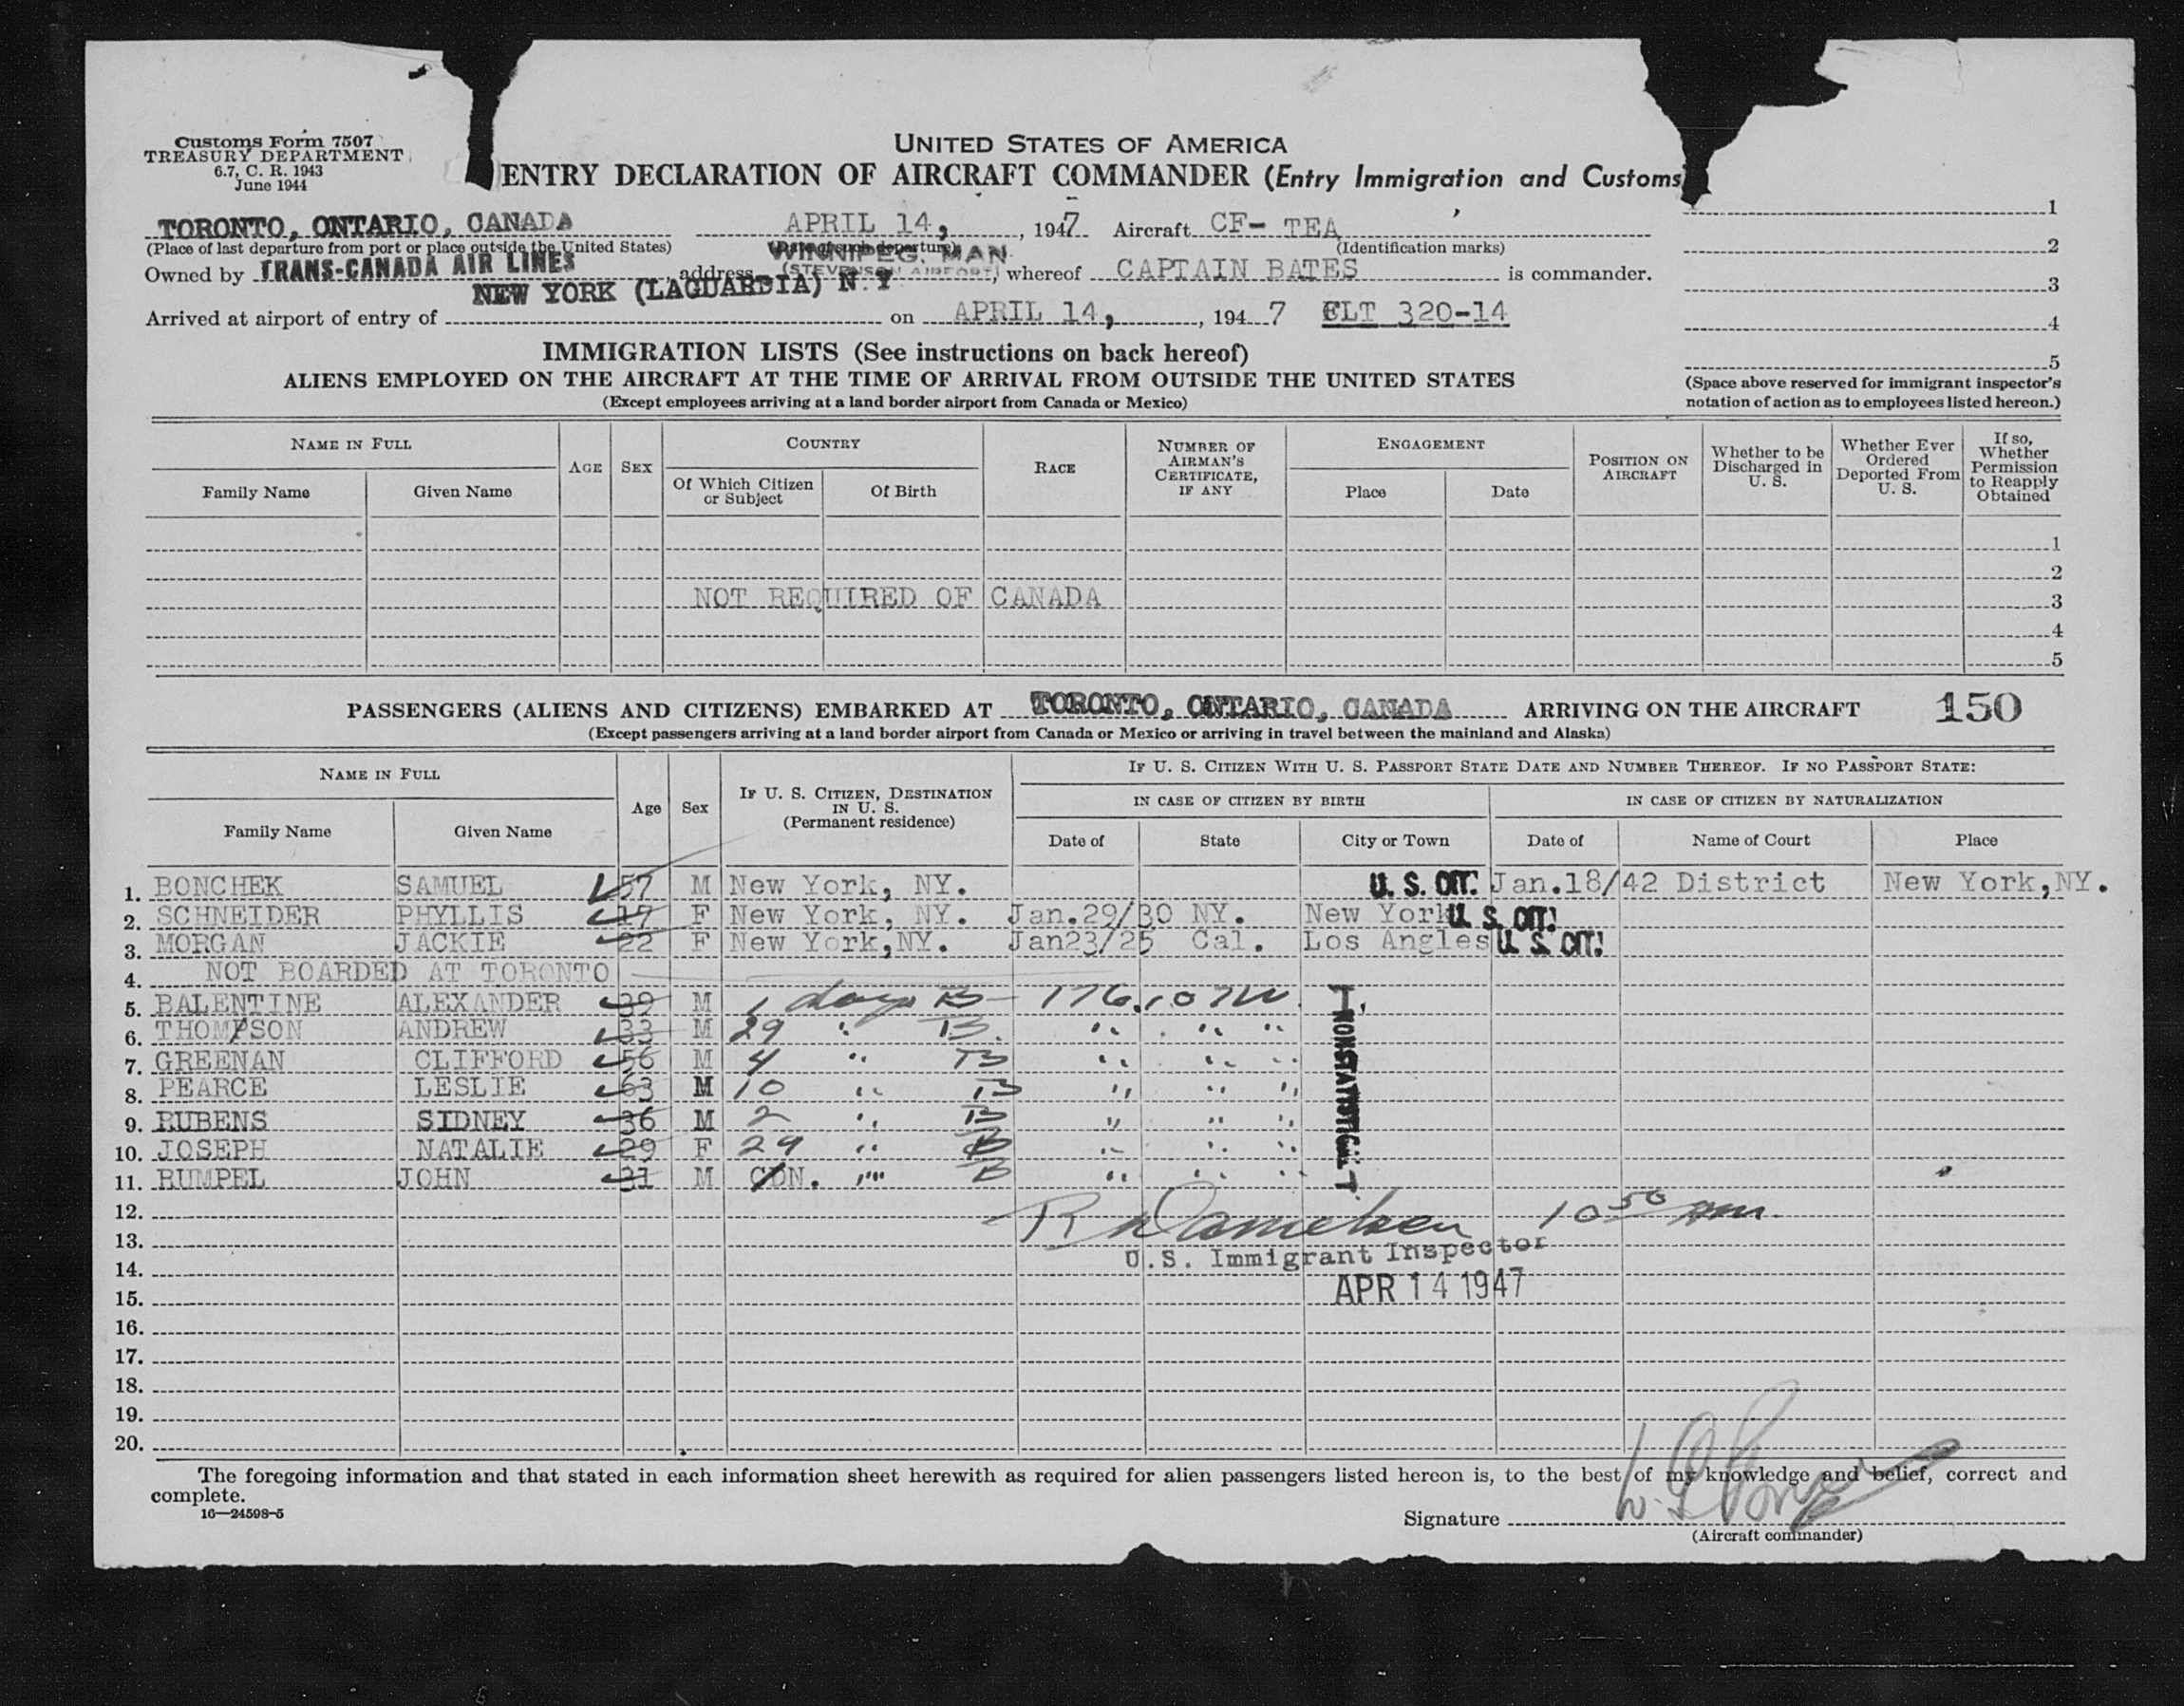 Customs Form 7507
TREASURY DEPARTMENT
6.7, C. R. 1943
June 1944
UNITED STATES OF AMERICA
ENTRY DECLARATION OF AIRCRAFT COMMANDER (Entry Immigration and Customs
TORONTO, ONTARIO, CANADA APRIL 14, , 1947 Aircraft CF- TEA
(Place of last departure from port or place outside the United States) (Date of such departure) (Identification marks)
WINNIPEG, MAN.
(STEVENSON AIRPORT)
Owned by TRANS-CANADA AIR LINES, address , whereof CAPTAIN BATES is commander.
NEW YORK (LAGUARDIA) N.Y
Arrived at airport of entry of on APRIL 14, , 1947 FLT 320-14
1
2
3
4
5
(Space above reserved for immigrant inspector's
notation of action as to employees listed hereon.)
IMMIGRATION LISTS (See instructions on back hereof)
ALIENS EMPLOYED ON THE AIRCRAFT AT THE TIME OF ARRIVAL FROM OUTSIDE THE UNITED STATES
(Except employees arriving at a land border airport from Canada or Mexico)
NAME IN FULL
Family Name Given Name
AGE SEX
COUNTRY
Of Which Citizen or Subject Of Birth
RACE
NUMBER OF AIRMAN'S CERTIFICATE, IF ANY
ENGAGEMENT
Place Date
POSITION ON AIRCRAFT
Whether to be Discharged in U. S.
Whether Ever Ordered Deported From U. S.
If so, Whether Permission to Reapply Obtained
1
2
NOT REQUIRED OF CANADA 3
4
5
PASSENGERS (ALIENS AND CITIZENS) EMBARKED AT TORONTO, ONTARIO, CANADA ARRIVING ON THE AIRCRAFT 150
(Except passengers arriving at a land border airport from Canada or Mexico or arriving in travel between the mainland and Alaska)
NAME IN FULL
Family Name Given Name
Age Sex
IF U. S. CITIZEN, DESTINATION IN U. S. (Permanent residence)
IF U. S. CITIZEN WITH U. S. PASSPORT STATE DATE AND NUMBER THEREOF. IF NO PASSPORT STATE:
IN CASE OF CITIZEN BY BIRTH IN CASE OF CITIZEN BY NATURALIZATION
Date of State City or Town Date of Name of Court Place
1. BONCHEK SAMUEL 57 M New York, NY. U. S. CIT. Jan.18/42 District New York,NY.
2. SCHNEIDER PHYLLIS 17 F New York, NY. Jan.29/30 NY. New York U. S. CIT.
3. MORGAN JACKIE 22 F New York,NY. Jan23/25 Cal. Los Angles U. S. CIT.
4. NOT BOARDED AT TORONTO
5. BALENTINE ALEXANDER 39 M 1 days B - 176.107
6. THOMPSON ANDREW 33 M 29 " B " " "
7. GREENAN CLIFFORD 56 M 4 " B " " "
8. PEARCE LESLIE 63 M 10 " B " " "
9. RUBENS SIDNEY 36 M 2 " B " " "
10. JOSEPH NATALIE 29 F 29 " B " " "
11. RUMPEL JOHN 31 M CDN. " B " " "
T. NON-STATISTICAL T.
12. 10 50 pm.
13. R Danielsen
14. U.S. Immigrant Inspector
15. APR 14 1947
16.
17.
18.
19.
20.
The foregoing information and that stated in each information sheet herewith as required for alien passengers listed hereon is, to the best of my knowledge and belief, correct and
complete.
16—24598-5
Signature
(Aircraft commander)